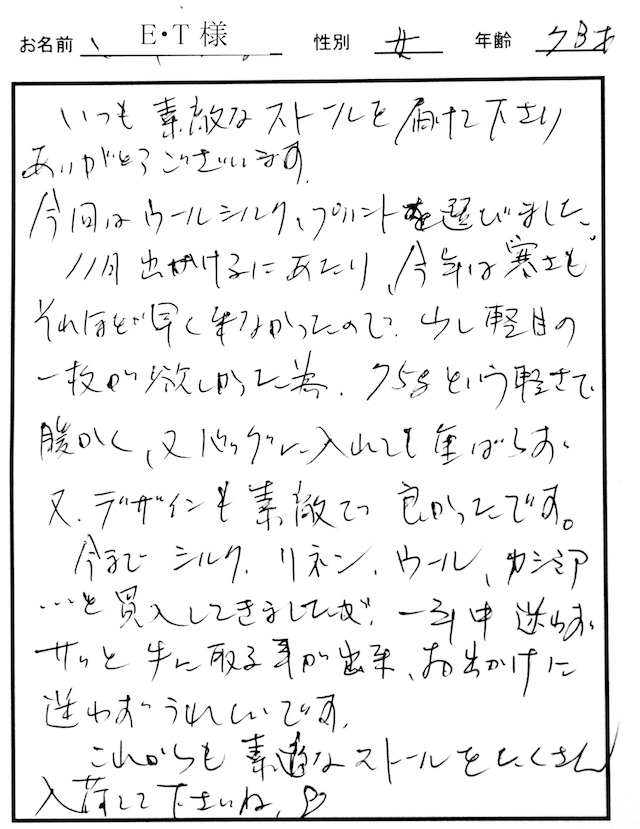 お名前 E・T様 性別 女 年齢 73才
いつも素敵なストールを届けて下さり
ありがとうございます。
今回はウールシルク、プリントを選びました。
11月出かけるにあたり、今年は寒さも
それほど早く来なかったので、少し軽目の
一枚が欲しかった為、75gという軽さで
暖かく、又バッグに入れても重ばらず、
又、デザインも素敵で良かったです。
今までシルク、リネン、ウール、カシミア
…と買入してきましたが、一年中迷わず
サッと手に取る事が出来、お出かけに
迷わずうれしいです。
これからも素適なストールをたくさん
入荷して下さいね。♡